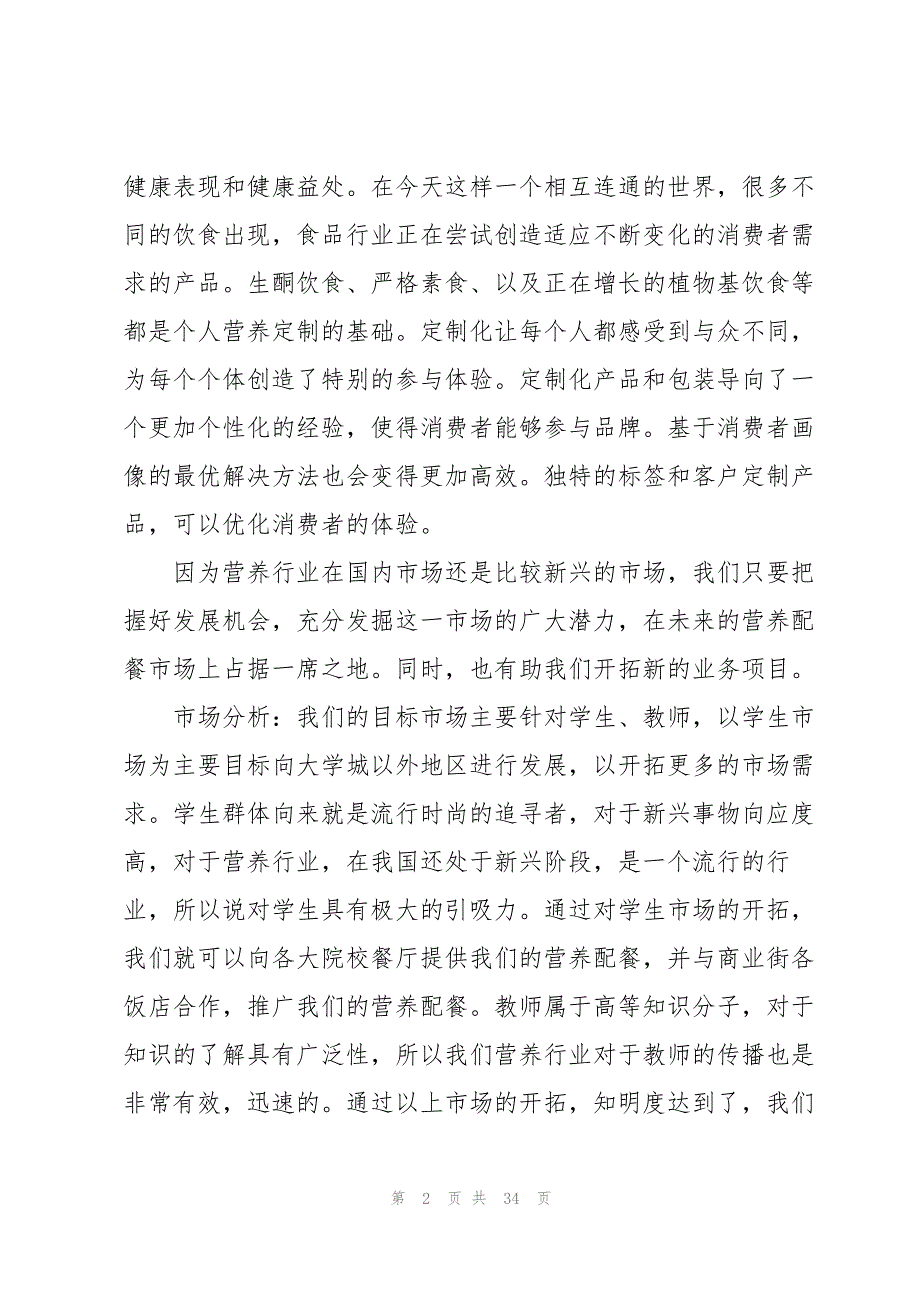 健康表现和健康益处。在今天这样一个相互连通的世界，很多不
同的饮食出现，食品行业正在尝试创造适应不断变化的消费者需
求的产品。生酮饮食、严格素食、以及正在增长的植物基饮食等
都是个人营养定制的基础。定制化让每个人都感受到与众不同，
为每个个体创造了特别的参与体验。定制化产品和包装导向了一
个更加个性化的经验，使得消费者能够参与品牌。基于消费者画
像的最优解决方法也会变得更加高效。独特的标签和客户定制产
品，可以优化消费者的体验。
因为营养行业在国内市场还是比较新兴的市场，我们只要把
握好发展机会，充分发掘这一市场的广大潜力，在未来的营养配
餐市场上占据一席之地。同时，也有助我们开拓新的业务项目。
市场分析：我们的目标市场主要针对学生、教师，以学生市
场为主要目标向大学城以外地区进行发展，以开拓更多的市场需
求。学生群体向来就是流行时尚的追寻者，对于新兴事物向应度
高，对于营养行业，在我国还处于新兴阶段，是一个流行的行
业，所以说对学生具有极大的引吸力。通过对学生市场的开拓，
我们就可以向各大院校餐厅提供我们的营养配餐，并与商业街各
饭店合作，推广我们的营养配餐。教师属于高等知识分子，对于
知识的了解具有广泛性，所以我们营养行业对于教师的传播也是
非常有效，迅速的。通过以上市场的开拓，知明度达到了，我们
第 2 页 共 34 页